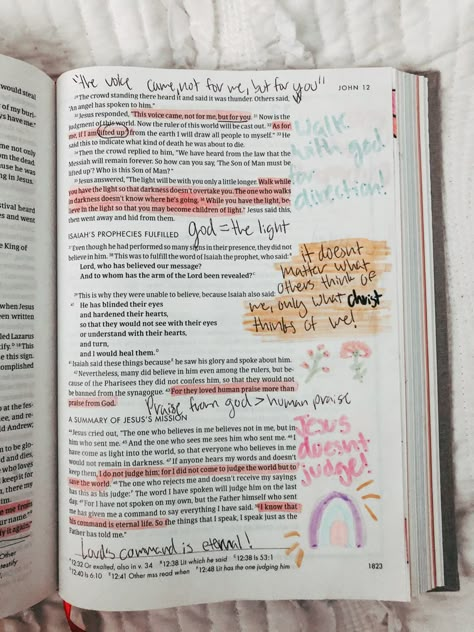 "the voice came, not for me, but for you"
JOHN 12
²⁹The crowd standing there heard it and said it was thunder. Others said,
"An angel has spoken to him."
³⁰ Jesus responded, "This voice came, not for me, but for you. ³¹ Now is the
judgment of this world. Now the ruler of this world will be cast out. ³² As for
me, if I am lifted up from the earth I will draw all people to myself." ³³ He
said this to indicate what kind of death he was about to die.
³⁴ Then the crowd replied to him, "We have heard from the law that the
Messiah will remain forever. So how can you say, 'The Son of Man must be
lifted up'? Who is this Son of Man?"
³⁵ Jesus answered, "The light will be with you only a little longer. Walk while
you have the light so that darkness doesn't overtake you. The one who walks
in darkness doesn't know where he's going. ³⁶ While you have the light, be-
lieve in the light so that you may become children of light." Jesus said this,
then went away and hid from them.
Walk
with god
for
direction!
ISAIAH'S PROPHECIES FULFILLED
god = the light
³⁷ Even though he had performed so many signs in their presence, they did not
believe in him. ³⁸ This was to fulfill the word of Isaiah the prophet, who said:
Lord, who has believed our message?
And to whom has the arm of the Lord been revealed?
³⁹ This is why they were unable to believe, because Isaiah also said:
⁴⁰ He has blinded their eyes
and hardened their hearts,
so that they would not see with their eyes
or understand with their hearts,
and turn,
and I would heal them.
it doesnt
matter what
others think of
me, only what christ
thinks of me!
⁴¹ Isaiah said these things because he saw his glory and spoke about him.
⁴² Nevertheless, many did believe in him even among the rulers, but be-
cause of the Pharisees they did not confess him, so that they would not
be banned from the synagogue. ⁴³ For they loved human praise more than
praise from God.
Praise from god > human praise
A SUMMARY OF JESUS'S MISSION
⁴⁴ Jesus cried out, "The one who believes in me believes not in me, but in
him who sent me. ⁴⁵ And the one who sees me sees him who sent me. ⁴⁶ I
have come as light into the world, so that everyone who believes in me
would not remain in darkness. ⁴⁷ If anyone hears my words and doesn't
keep them, I do not judge him; for I did not come to judge the world but to
save the world. ⁴⁸ The one who rejects me and doesn't receive my sayings
has this as his judge: The word I have spoken will judge him on the last
day. ⁴⁹ For I have not spoken on my own, but the Father himself who sent
me has given me a command to say everything I have said. ⁵⁰ I know that
his command is eternal life. So the things that I speak, I speak just as the
Father has told me."
Jesus
doesn't
judge!
Lord's command is eternal!
12:32 Or exalted, also in v. 34 12:38 Lit which he said 12:38 Is 53:1
12:40 Is 6:10 12:41 Other mss read when 12:48 Lit has the one judging him
1823
would steal
me not only
he King of
when Jesus
been written
led Lazarus
the sign.